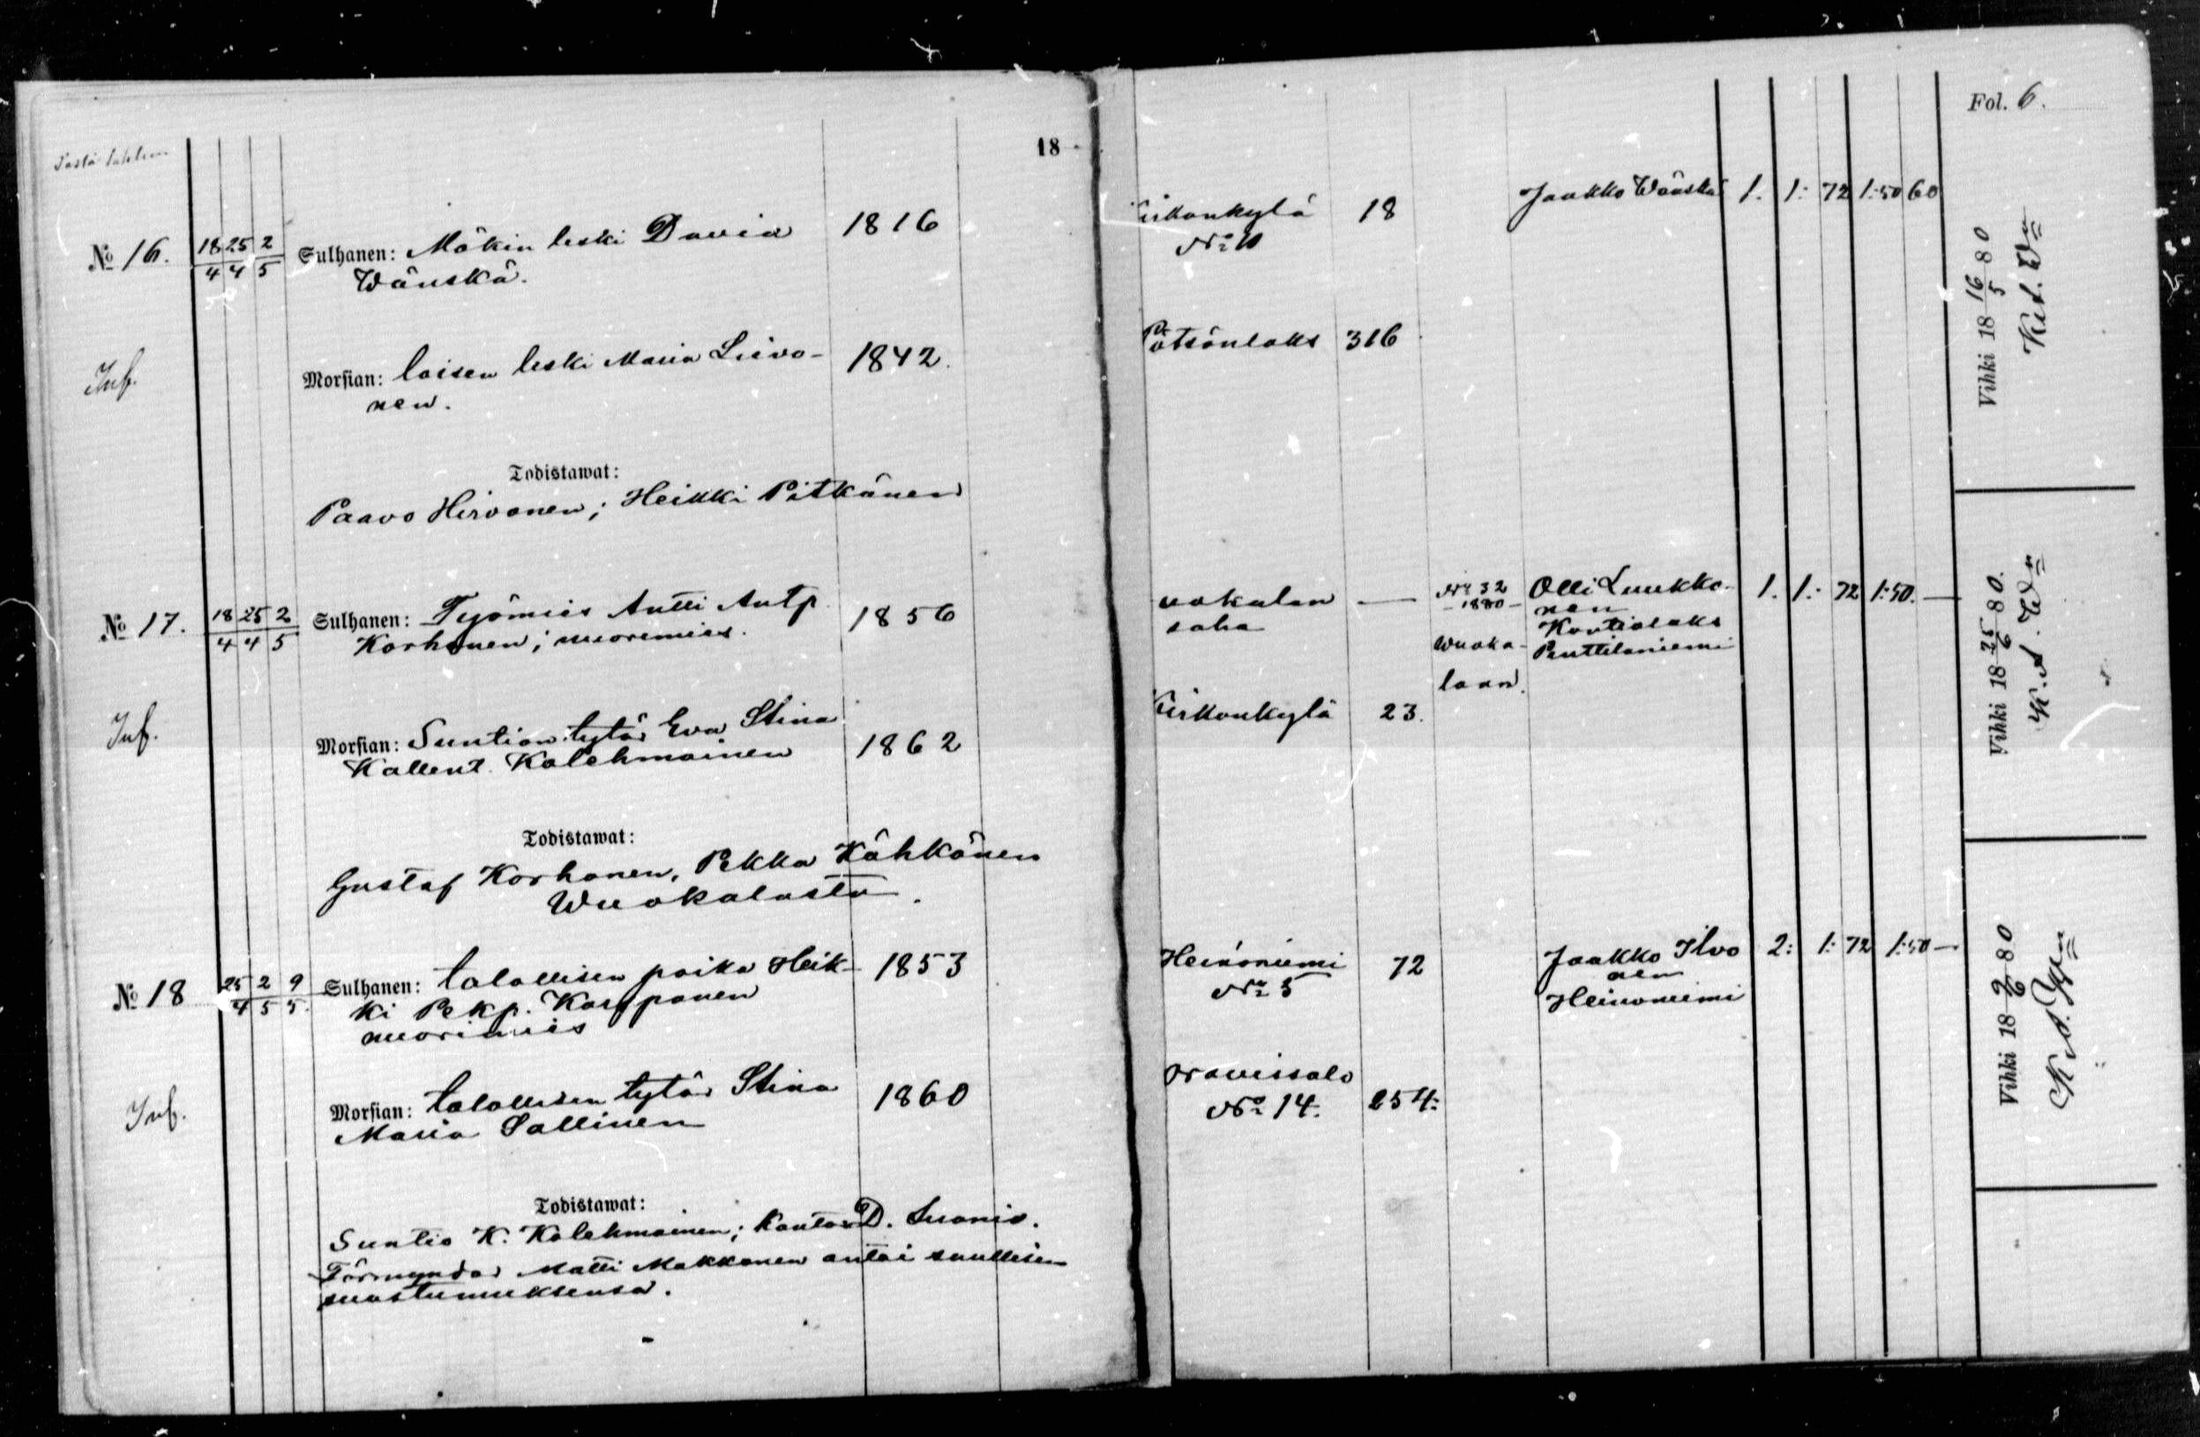 18
Fol. 6.
№ 16.
18 25 2
4 4 5
Sulhanen: Mökin leski David
Wänskä.
1816
Kirkonkylä
№ 10
18
Jaakko Wänskä
1. 1:- 72 1:50 60
Vihki 18 16/5 80
Inf.
Morsian: loisen leski Maria Siivo-
nen.
1842.
Pötsönlaks
316
Todistawat:
Paavo Hirvonen; Heikki Pitkänen
№ 17.
18 25 2
4 4 5
Sulhanen: Työmies Antti Antp.
Korhonen; nuorimies.
1856
uokalan
saha
—
№ 32
-1880-
Wuoka-
laan.
Olli Luukko-
nen
Kontiolaks
Penttilaniemi
1. 1:- 72 1:50. —
Vihki 18 25/6 80.
K. A. W
Inf.
Morsian: Suntion tytär Eva Stina
Kallent. Kolehmainen
1862
Kirkonkylä
23.
Todistawat:
Gustaf Korhonen, Pekka Kähkönen
Wuokalasta.
№ 18
25 2 9
4 5 5.
Sulhanen: talollisen poika Heik-
ki Pekp. Karpponen
nuorimies
1853
Heinoniemi
№ 5
72
Jaakko Ilvo
nen
Heinoniemi
2: 1:- 72 1:50 —
Vihki 18 9/6 80
Inf.
Morsian: talollisen tytär Stina
Maria Sallinen
1860
Oravissalo
№ 14.
254:
Todistawat:
Suntio K. Kolehmainen; kantor D. Suonio.
Förmyndar Matti Makkonen antoi suullisen
suostumuksensa.